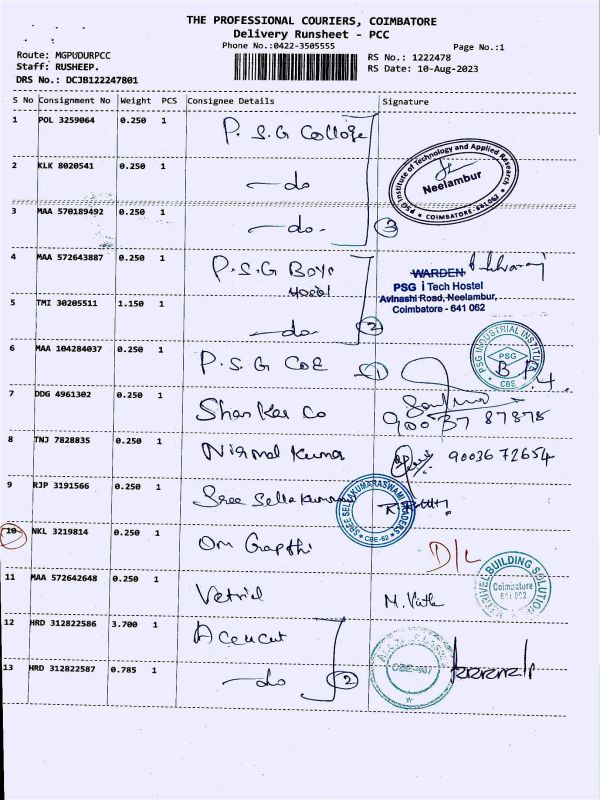 THE PROFESSIONAL COURIERS, COIMBATORE
Delivery Runsheet - PCC
Phone No.:0422-3505555
Page No.:1
Route: MGPUDURPCC
Staff: RUSHEEP.
DRS No.: DCJB122247801
RS No.: 1222478
RS Date: 10-Aug-2023
S No Consignment No Weight PCS Consignee Details Signature
1 POL 3259064 0.250 1 P.S.G College
PSG Institute of Technology and Applied Research
Neelambur
COIMBATORE-641062
2 KLK 8020541 0.250 1 do
3 MAA 570189492 0.250 1 do 3
4 MAA 572643887 0.250 1 P.S.G Boys Hostel
WARDEN
PSG i Tech Hostel
Avinashi Road, Neelambur,
Coimbatore - 641 062
5 TMI 30205511 1.150 1 do 2
6 MAA 104284037 0.250 1 P.S.G COE 1
PSG INDUSTRIAL INSTITUTE
PSG
CBE
7 DDG 4961302 0.250 1 Shankar Co
90037 87878
8 TNJ 7828835 0.250 1 Nirmal Kumar 90036 72654
9 RJP 3191566 0.250 1 Sree
SREE SELLAKUMARASWAMI TRADERS
CBE-62
10 NKL 3219814 0.250 1 Om D/L
11 MAA 572642648 0.250 1 M.
BUILDING SOLUTION
Coimbatore
12 HRD 312822586 3.700 1
13 HRD 312822587 0.785 1 do 2